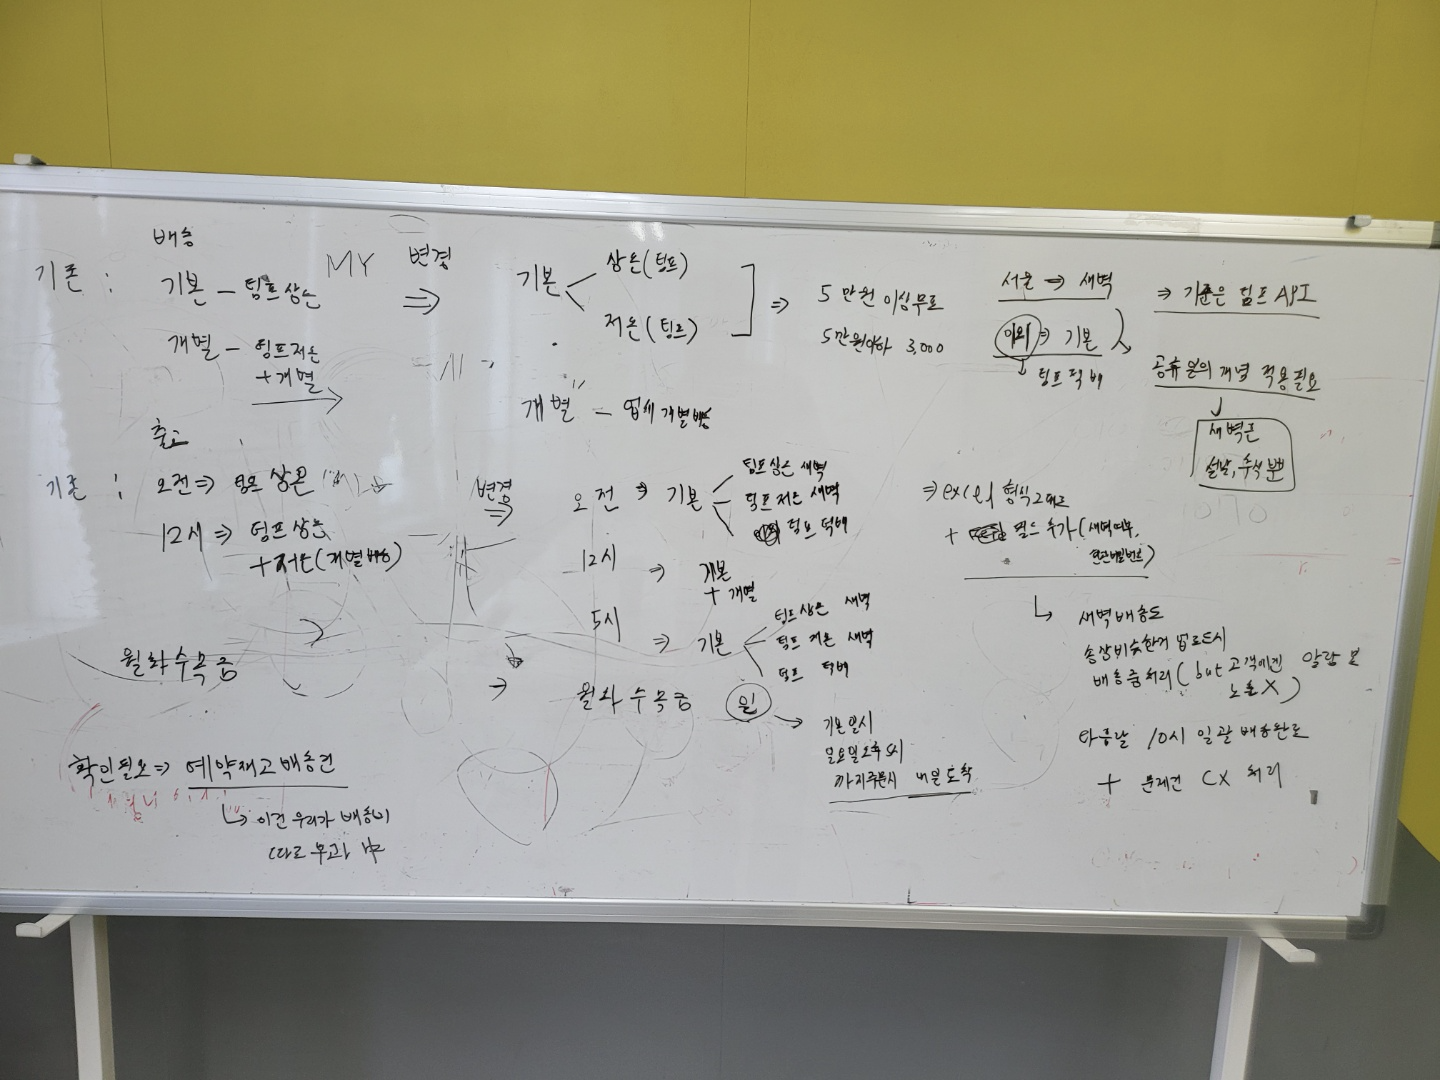 배송
기존 : 기본 - 팀프상온
개별 - 팀프저온
+ 개별
MY
변경
⇒
기본 < 상온(팀프)
저온(팀프)
⇒ 5만원 이상무료
5만원이하 3,000
개별 - 업체개별배송
서울 ⇒ 새벽
이외 ⇒ 기본
↓ 팀프택배
⇒ 기준은 팀프 API
공휴일의 개념 적용필요
↓
새벽은
설날, 추석 뿐
출고
기존 : 오전 ⇒ 팀프상온
12시 ⇒ 팀프상온
+ 저온(개별배송)
변경
⇒
오전 ⇒ 기본
팀프상온 새벽
팀프저온 새벽
팀프 택배
12시 ⇒ 기본
+ 개별
5시 ⇒ 기본
팀프상온 새벽
팀프저온 새벽
팀프 택배
⇒ excel 형식그대로
+ 필드 추가(새벽여부,
현관비밀번호)
↳ 새벽배송도
송장비슷한거 업로드시
배송중처리(but 고객에겐 알람
노출X)
다음날 10시 일괄 배송완료
+ 문제건 CX 처리
월화수목금
→ 월화수목금 일
→ 기본일시
일요일오후5시
까지주문시 내일 도착
확인필요 ⇒ 예약재고배송건
↳ 이건 우리가 배송비
따로 부과 中